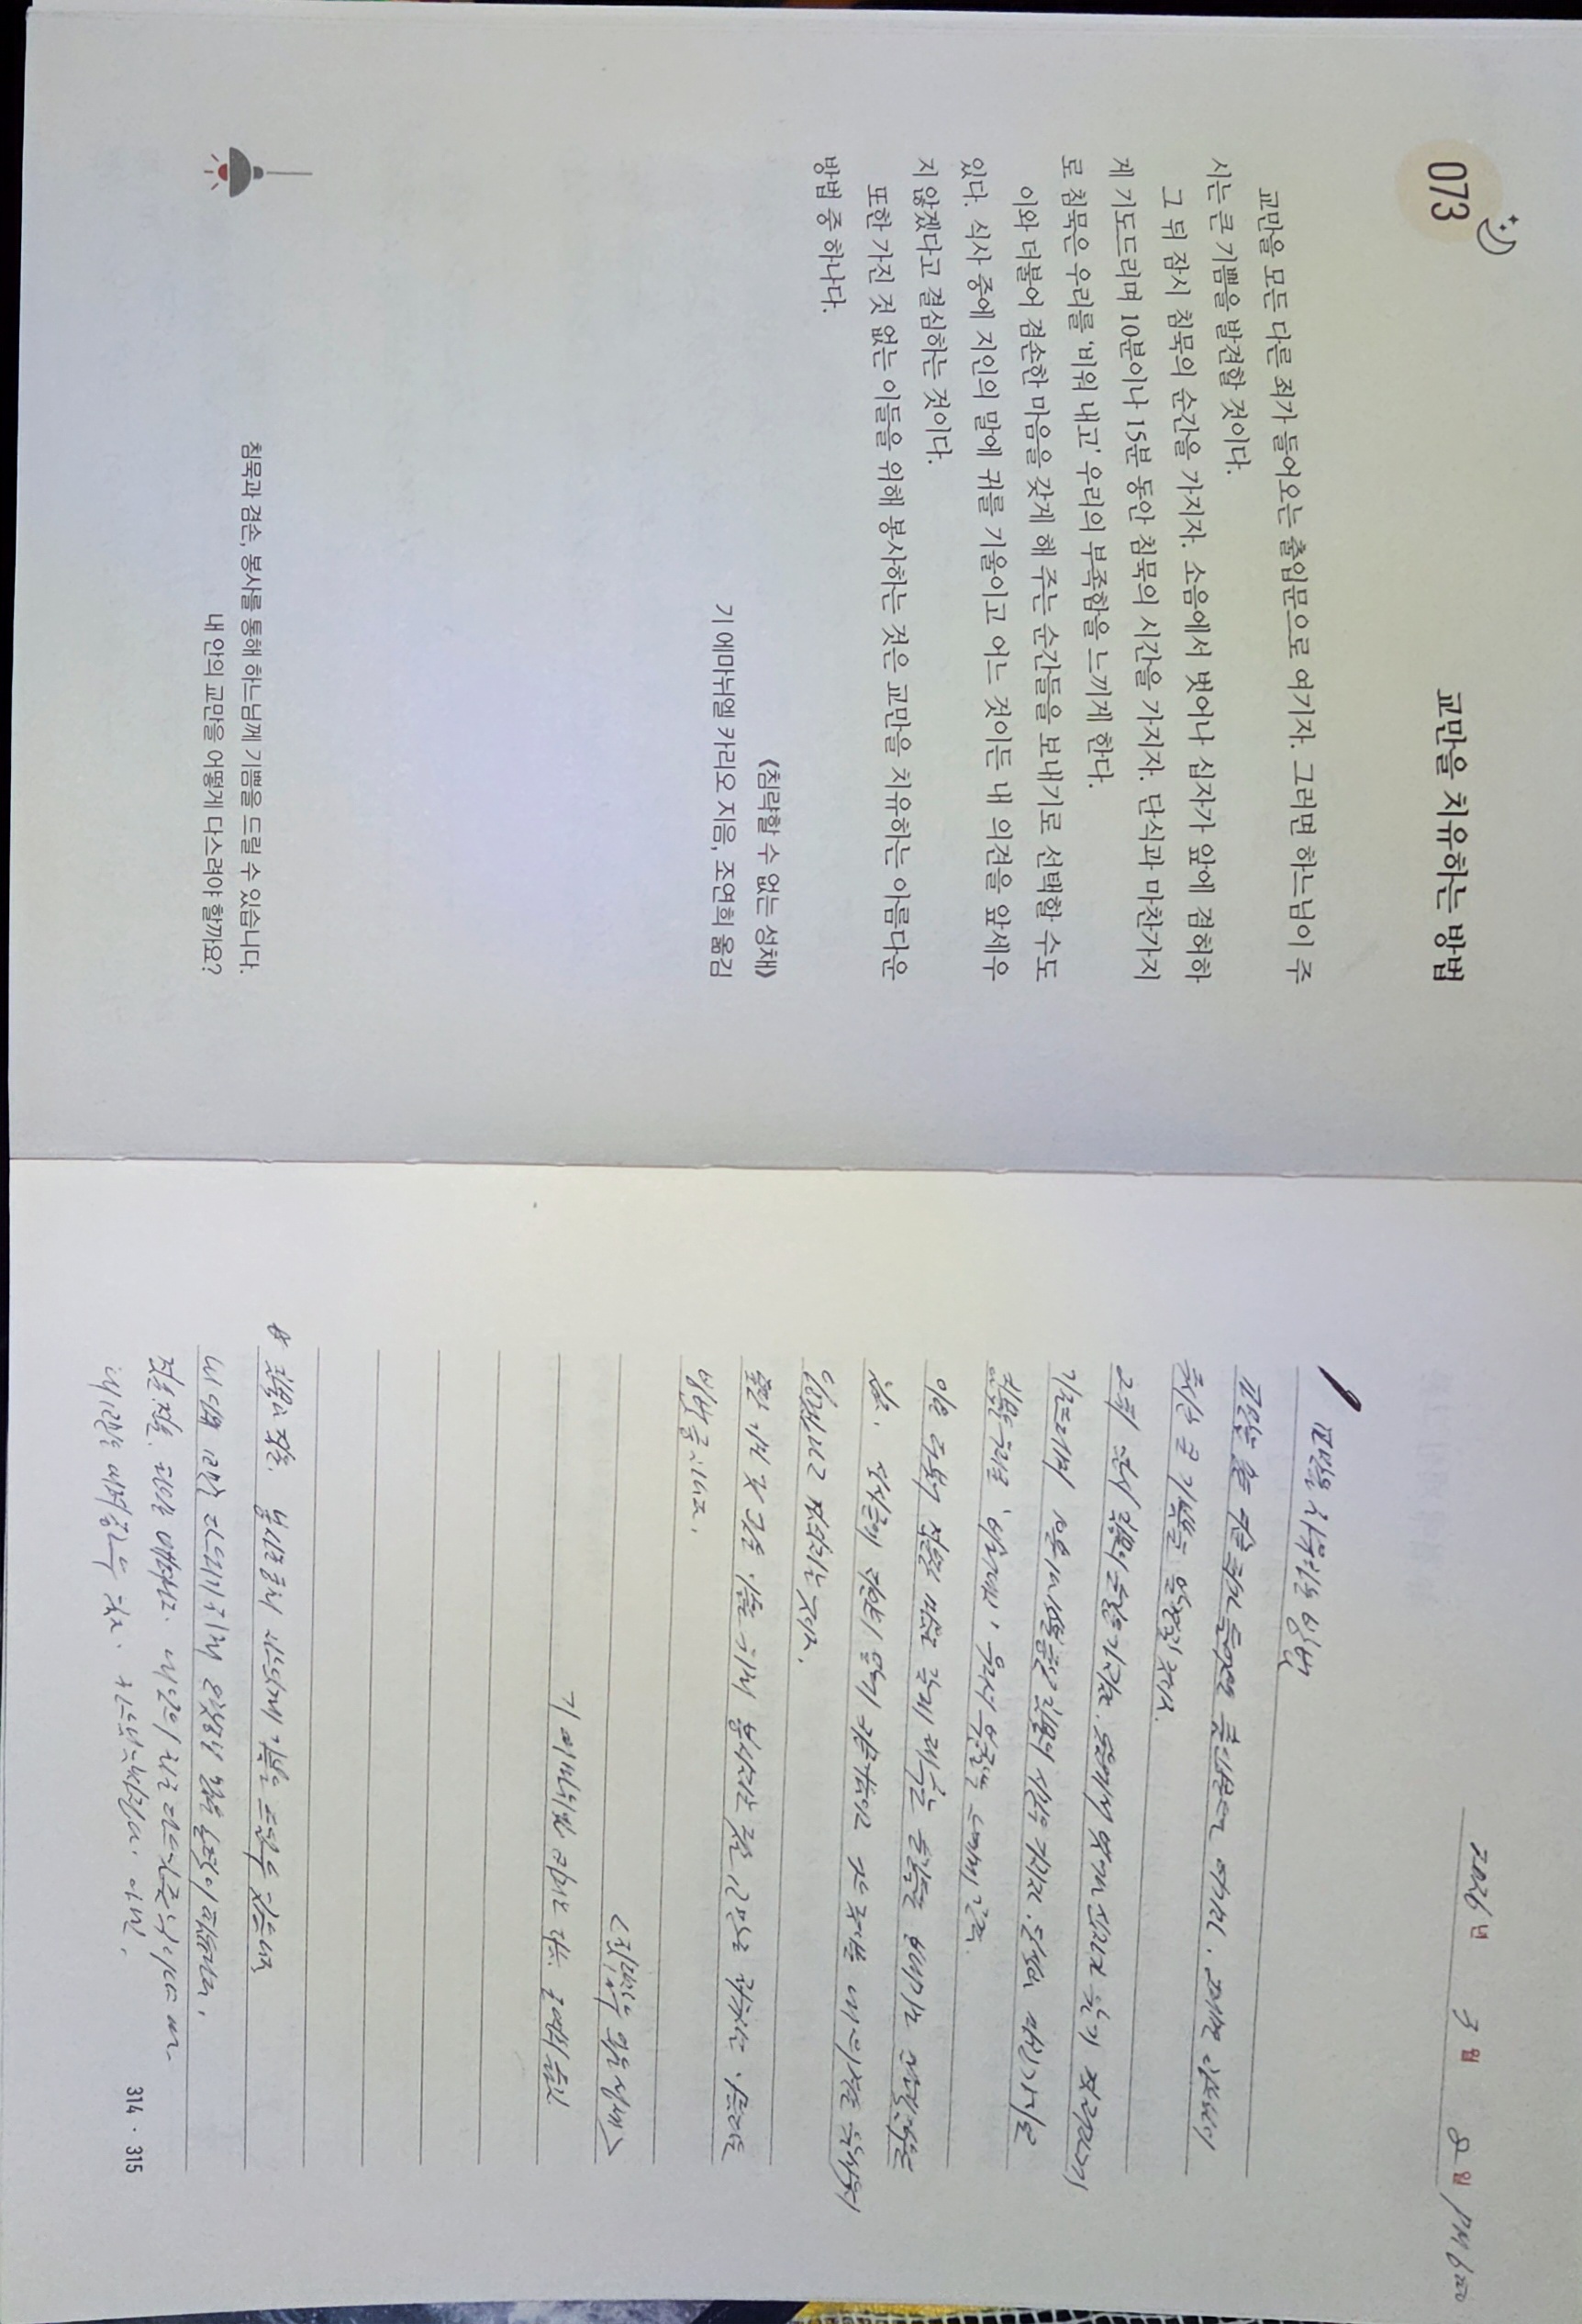 073
교만을 치유하는 방법
교만을 모든 다른 죄가 들어오는 출입문으로 여기자. 그러면 하느님이 주
시는 큰 기쁨을 발견할 것이다.
그 뒤 잠시 침묵의 순간을 가지자. 소음에서 벗어나 십자가 앞에 겸허하
게 기도드리며 10분이나 15분 동안 침묵의 시간을 가지자. 단식과 마찬가지
로 침묵은 우리를 ‘비워 내고’ 우리의 부족함을 느끼게 한다.
이와 더불어 겸손한 마음을 갖게 해 주는 순간들을 보내기로 선택할 수도
있다. 식사 중에 지인의 말에 귀를 기울이고 어느 것이든 내 의견을 앞세우
지 않겠다고 결심하는 것이다.
또한 가진 것 없는 이들을 위해 봉사하는 것은 교만을 치유하는 아름다운
방법 중 하나다.
《침략할 수 없는 성채》
기 에마뉘엘 카리오 지음, 조연희 옮김
침묵과 겸손, 봉사를 통해 하느님께 기쁨을 드릴 수 있습니다.
내 안의 교만을 어떻게 다스려야 할까요?
2026년 3월 8일 PM 6:00
교만을 치유하는 방법
교만을 모든 다른 죄가 들어오는 출입문으로 여기자. 그러면 하느님이
주시는 큰 기쁨을 발견할 것이다.
그 뒤 잠시 침묵의 순간을 가지자. 소음에서 벗어나 십자가 앞에 겸허하게
기도드리며 10분이나 15분 동안 침묵의 시간을 가지자. 단식과 마찬가지로
침묵은 우리를 ‘비워 내고’ 우리의 부족함을 느끼게 한다.
이와 더불어 겸손한 마음을 갖게 해 주는 순간들을 보내기로 선택할 수도
있다. 식사 중에 지인의 말에 귀를 기울이고 어느 것이든 내 의견을 앞세우지
않겠다고 결심하는 것이다.
또한 가진 것 없는 이들을 위해 봉사하는 것은 교만을 치유하는 아름다운
방법 중 하나다.
<침략할 수 없는 성채>
기 에마뉘엘 카리오 지음. 조연희 옮김
침묵과 겸손. 봉사를 통해 하느님께 기쁨을 드릴 수 있습니다
314 · 315